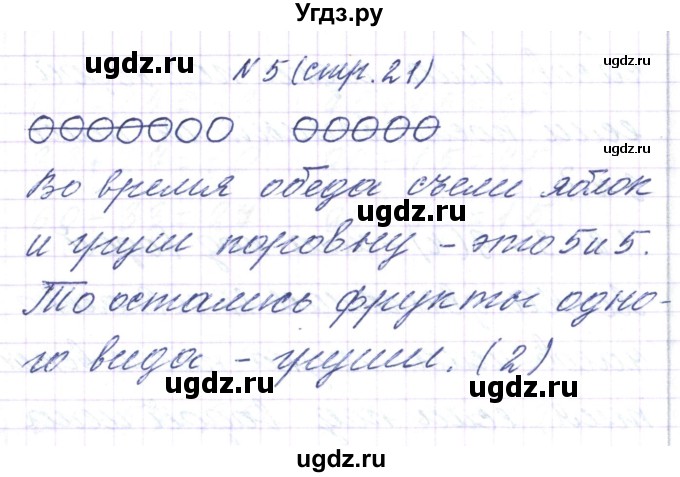 Угдз.ру
ugdz.ru
ugdz.ru
№ 5 (стр. 21)
ugdz.ru
Во время обеда съели яблок
ugdz.ru
и груш поровну - это 5 и 5.
ugdz.ru
То остались фрукты одно-
го вида - груши. (2)
ugdz.ru
ugdz.ru
ugdz.ru